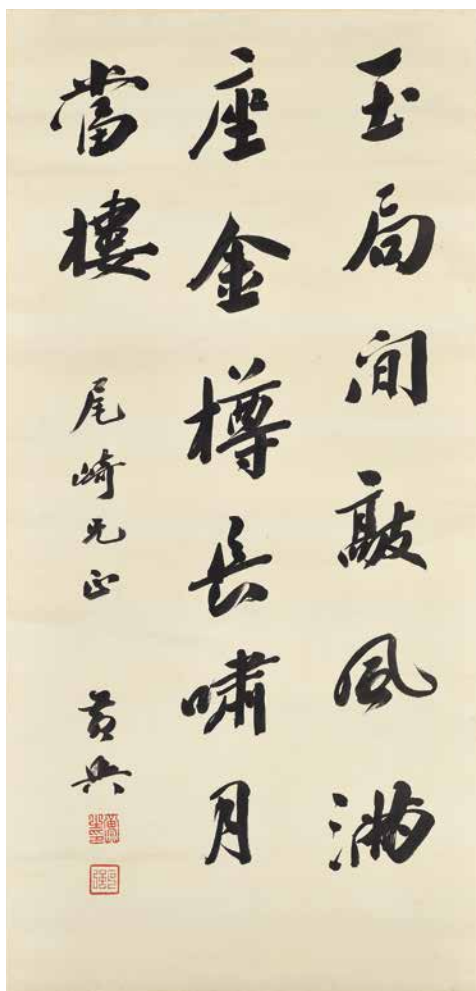 玉局間敲風滿
座金樽長嘯月
當樓
尾崎兄正 黃興